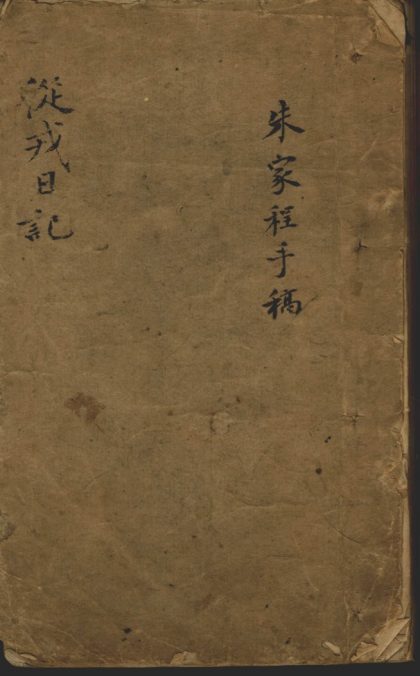 朱家程手稿
從戎日記